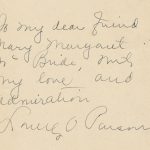 To my dear friend
Mary Margaret
Mc Bride, with
my love and
admiration
Louella O Parsons